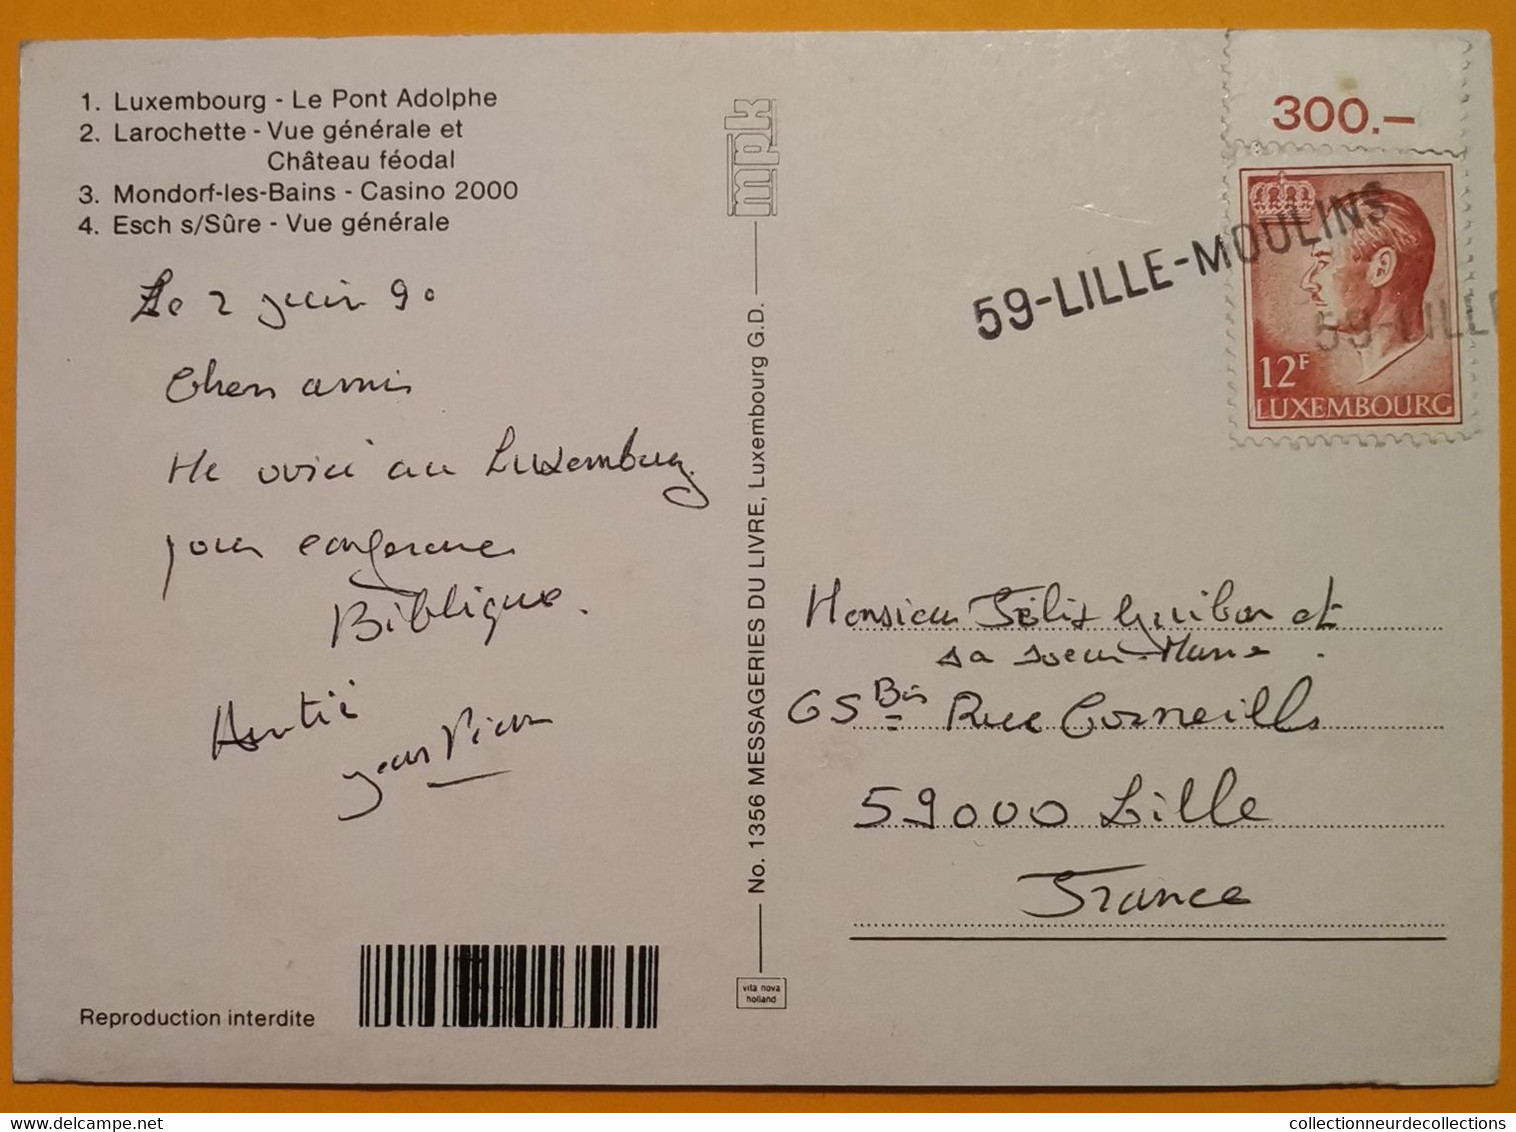 1. Luxembourg - Le Pont Adolphe
2. Larochette - Vue générale et
Château féodal
3. Mondorf-les-Bains - Casino 2000
4. Esch s/Sûre - Vue générale
Le 2 juin 90
Chers amis
Me voici au Luxembourg
pour conférences
Biblique.
Amitié
Jean Pierre
Reproduction interdite
mpk
No. 1356 MESSAGERIES DU LIVRE, Luxembourg G.D.
vita nova
holland
300.-
59-LILLE-MOULINS
59-LILLE
12F
LUXEMBOURG
Monsieur Félix et
sa soeur Marie.
65 Bis Rue Corneille
59000 Lille
France
collectionneurdecollections